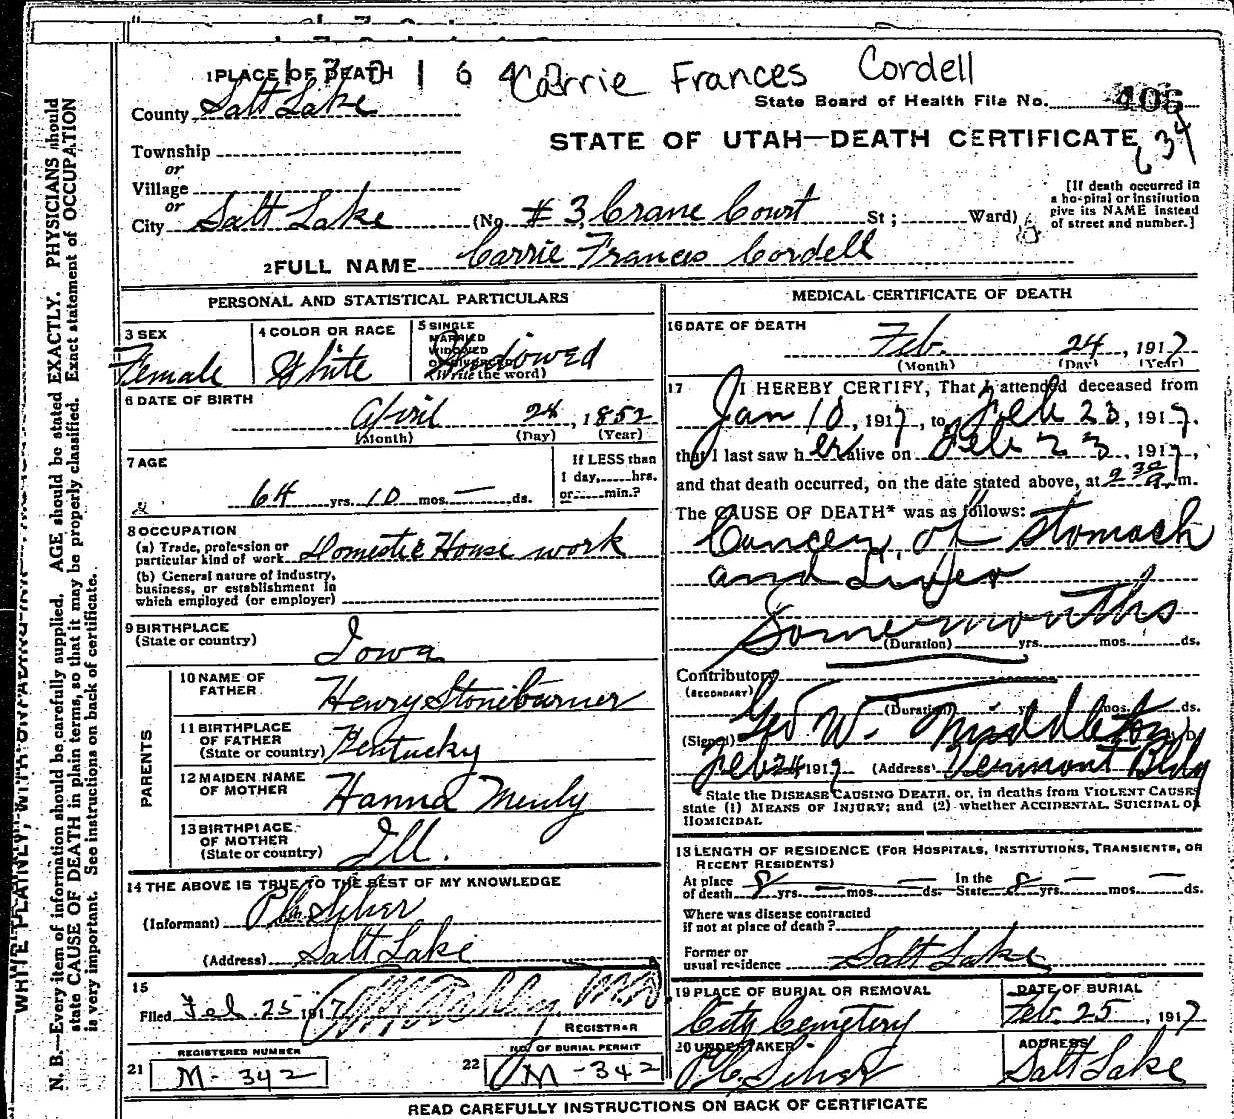 Carrie Frances Cordell
1 PLACE OF DEATH
County Salt Lake
State Board of Health File No. 406
634
STATE OF UTAH—DEATH CERTIFICATE
Township
or
Village
or
City Salt Lake (No. #3, Crane Court St; Ward)
[If death occurred in
a hospital or institution
give its NAME instead
of street and number.]
2 FULL NAME Carrie Frances Cordell
PERSONAL AND STATISTICAL PARTICULARS
3 SEX
Female
4 COLOR OR RACE
White
5 SINGLE
MARRIED
WIDOWED
OR DIVORCED
(Write the word)
Widowed
6 DATE OF BIRTH
April 24, 1852
(Month) (Day) (Year)
7 AGE
64 yrs. 10 mos. — ds.
If LESS than
1 day, hrs.
or min.?
8 OCCUPATION
(a) Trade, profession or
particular kind of work Domestic House work
(b) General nature of industry,
business, or establishment in
which employed (or employer)
9 BIRTHPLACE
(State or country)
Iowa
PARENTS
10 NAME OF
FATHER
Henry Stoneburner
11 BIRTHPLACE
OF FATHER
(State or country) Kentucky
12 MAIDEN NAME
OF MOTHER
Hanna
13 BIRTHPLACE
OF MOTHER
(State or country)
Ill.
14 THE ABOVE IS TRUE TO THE BEST OF MY KNOWLEDGE
(Informant)
(Address) Salt Lake
15
Filed Feb. 25 1917
M.D.
REGISTRAR
REGISTERED NUMBER
21 M-342
NO. OF BURIAL PERMIT
22 M-342
MEDICAL CERTIFICATE OF DEATH
16 DATE OF DEATH
Feb. 24, 1917
(Month) (Day) (Year)
17 I HEREBY CERTIFY, That I attended deceased from
Jan 10, 1917, to Feb 23, 1917.
that I last saw her alive on Feb 23, 1917,
and that death occurred, on the date stated above, at 2 30 a.m.
The CAUSE OF DEATH* was as follows:
Cancer of Stomach
and Liver
Some months
(Duration) yrs. mos. ds.
Contributory
(SECONDARY)
(Duration) yrs. mos. ds.
(Signed) Geo W. Middleton M.D.
Feb 24 1917 (Address) Vermont Bldg
State the DISEASE CAUSING DEATH, or, in deaths from VIOLENT CAUSES
state (1) MEANS OF INJURY; and (2) whether ACCIDENTAL, SUICIDAL OR
HOMICIDAL
18 LENGTH OF RESIDENCE (FOR HOSPITALS, INSTITUTIONS, TRANSIENTS, OR
RECENT RESIDENTS)
At place
of death 8 yrs. — mos. — ds. In the State 8 yrs. — mos. — ds.
Where was disease contracted
if not at place of death?
Former or
usual residence Salt Lake
19 PLACE OF BURIAL OR REMOVAL
City Cemetery
DATE OF BURIAL
Feb. 25, 1917
20 UNDERTAKER
ADDRESS
Salt Lake
READ CAREFULLY INSTRUCTIONS ON BACK OF CERTIFICATE
N. B.—Every item of information should be carefully supplied. AGE should be stated EXACTLY. PHYSICIANS should
state CAUSE OF DEATH in plain terms, so that it may be properly classified. Exact statement of OCCUPATION
is very important. See instructions on back of certificate.